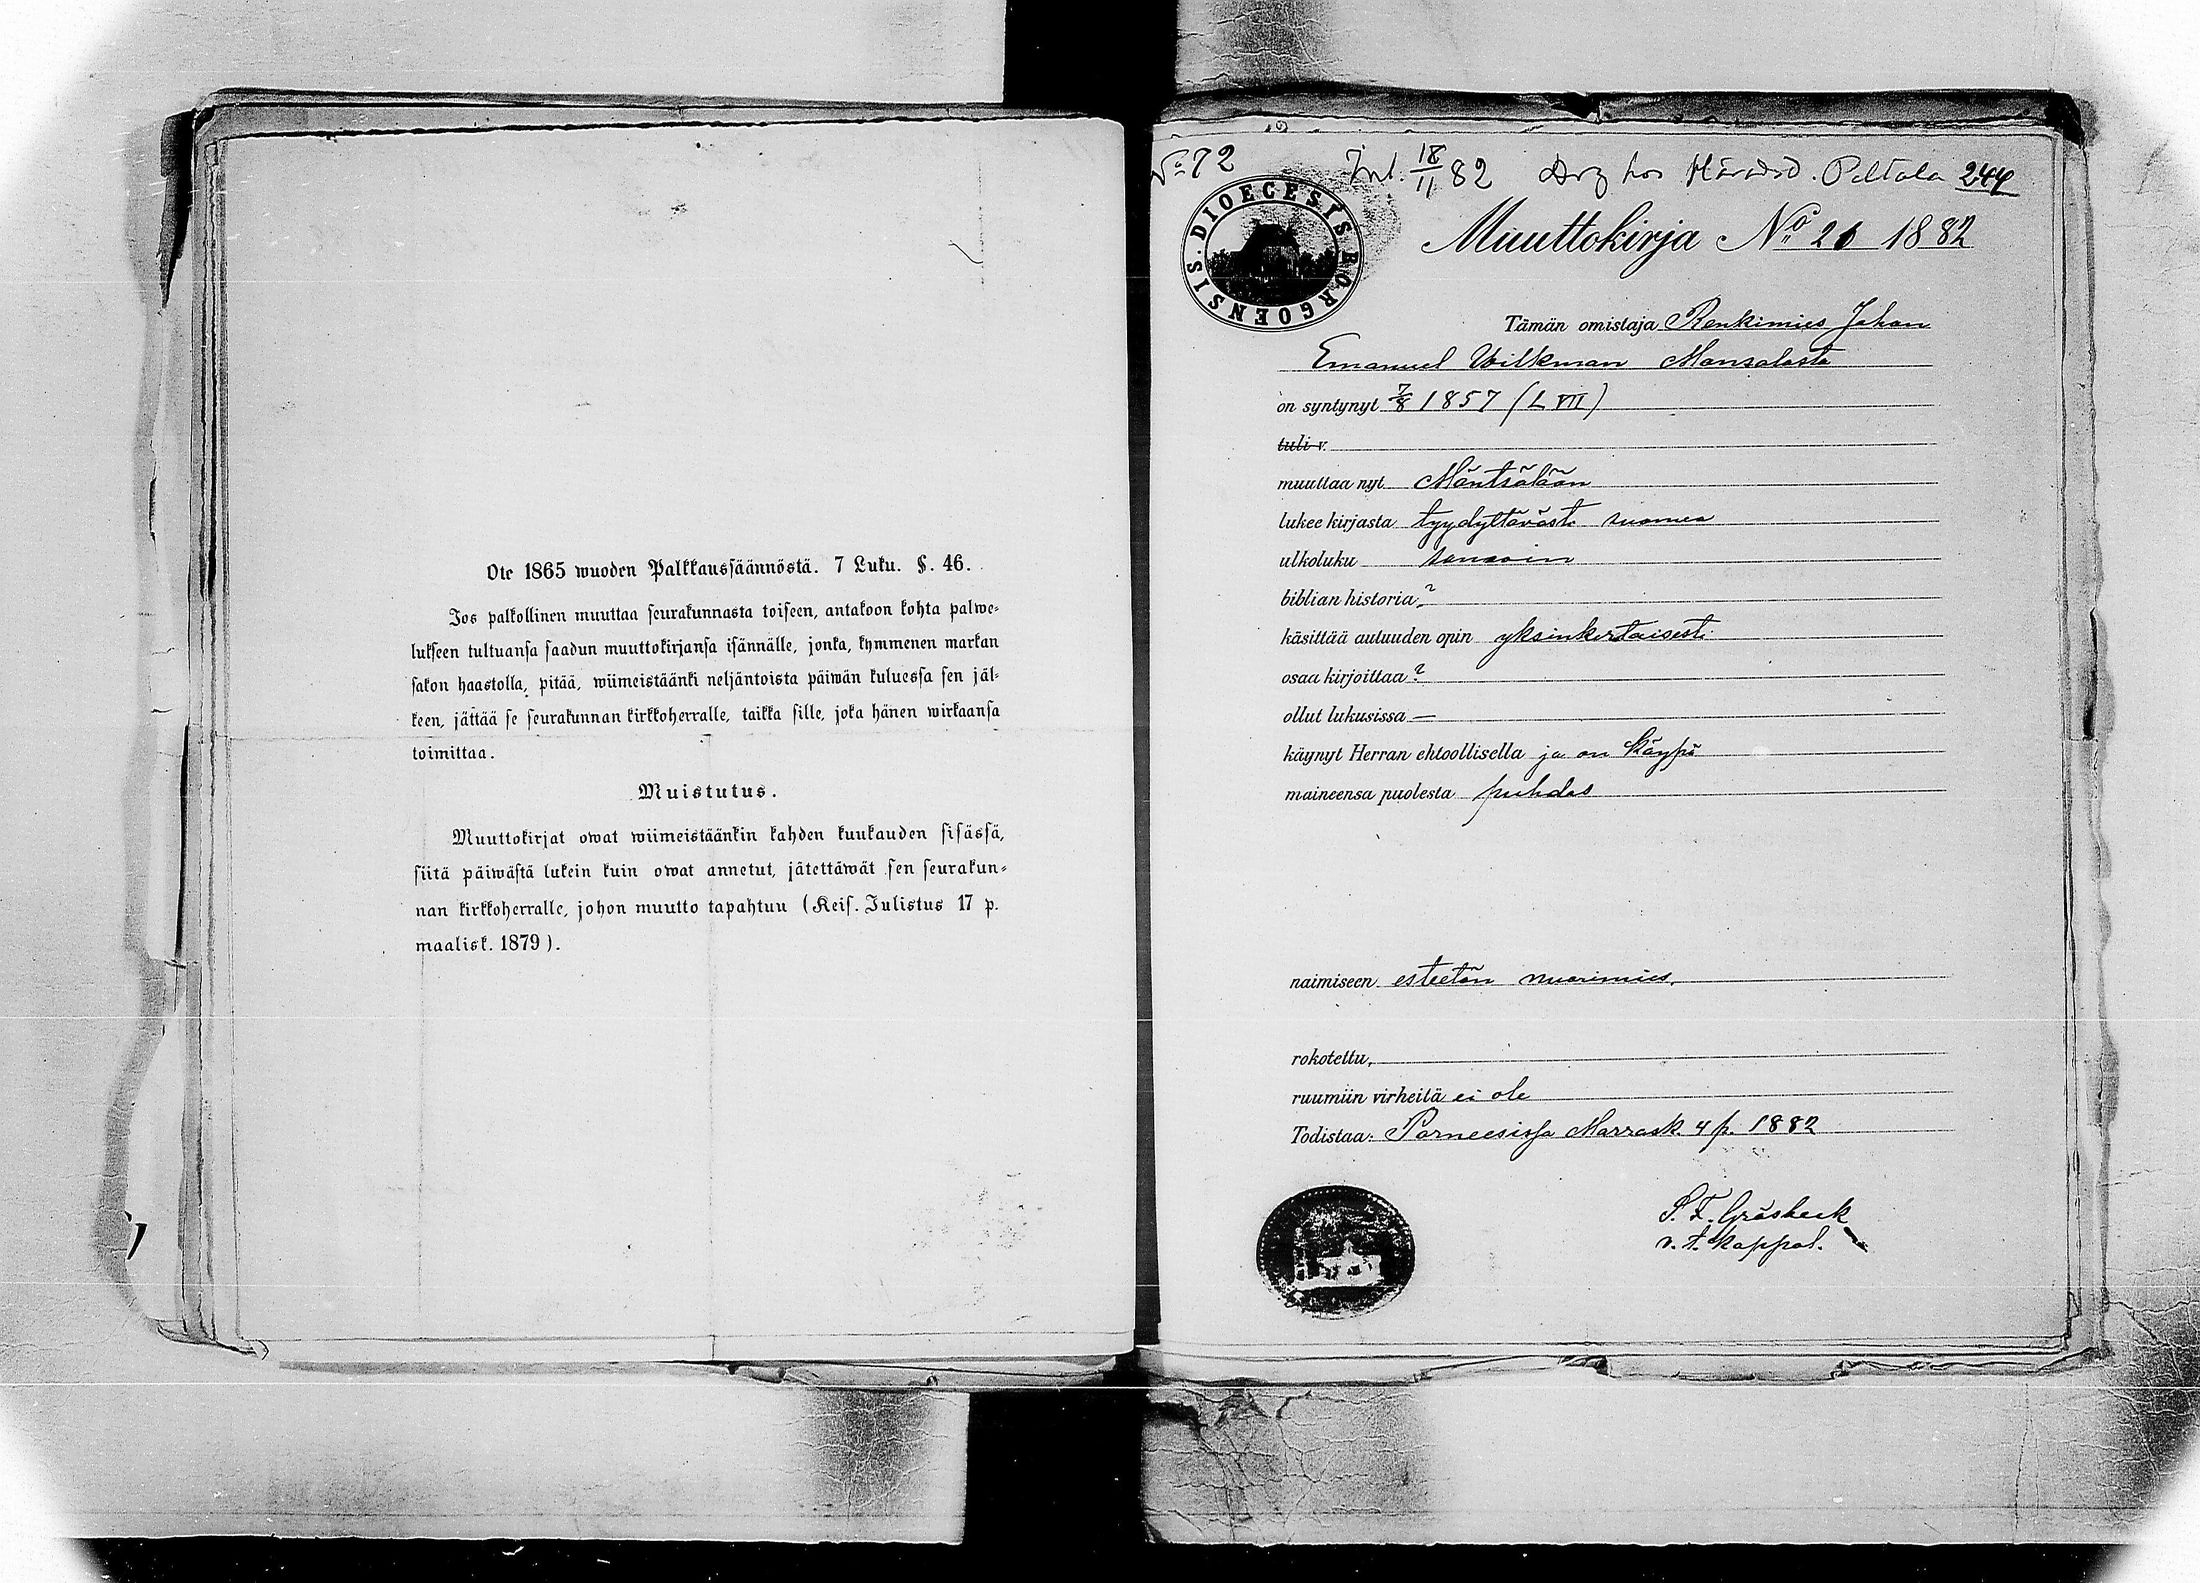 Ote 1865 wuoden Palkkaussäännöstä. 7 Luku. §. 46.
Jos palkollinen muuttaa seurakunnasta toiseen, antakoon kohta palwe-
lukseen tultuansa saadun muuttokirjansa isännälle, jonka, kymmenen markan
sakon haastolla, pitää, wiimeistäänki neljäntoista päiwän kuluessa sen jäl-
keen, jättää se seurakunnan kirkkoherralle, taikka sille, joka hänen wirkaansa
toimittaa.
Muistutus.
Muuttokirjat owat wiimeistäänkin kahden kuukauden sisässä,
siitä päiwästä lukein kuin owat annetut, jätettäwät sen seurakun-
nan kirkkoherralle, johon muutto tapahtuu (Keis. Julistus 17 p.
maalisk. 1879).
No 72 Int. 18/11 82 Drg hos Häradsd. Peltala 244
DIOECESIS BORGOENSIS
Muuttokirja No 26 1882
Tämän omistaja Renkimies Johan
Emanuel Wilkman Monsalasta
on syntynyt 7/8 1857 (L VII)
tuli v.
muuttaa nyt Mäntsälään
lukee kirjasta tyydyttävästi suomea
ulkoluku samoin
biblian historia ?
käsittää autuuden opin yksinkertaisesti
osaa kirjoittaa ?
ollut lukusissa —
käynyt Herran ehtoollisella ja on käypä
maineensa puolesta puhdas
naimiseen esteetön nuorimies.
rokotettu,
ruumiin virheitä ei ole
Todistaa: Porneesissa Marrask. 4 p. 1882
S. F. Gräsbeck
v. t. kappal.